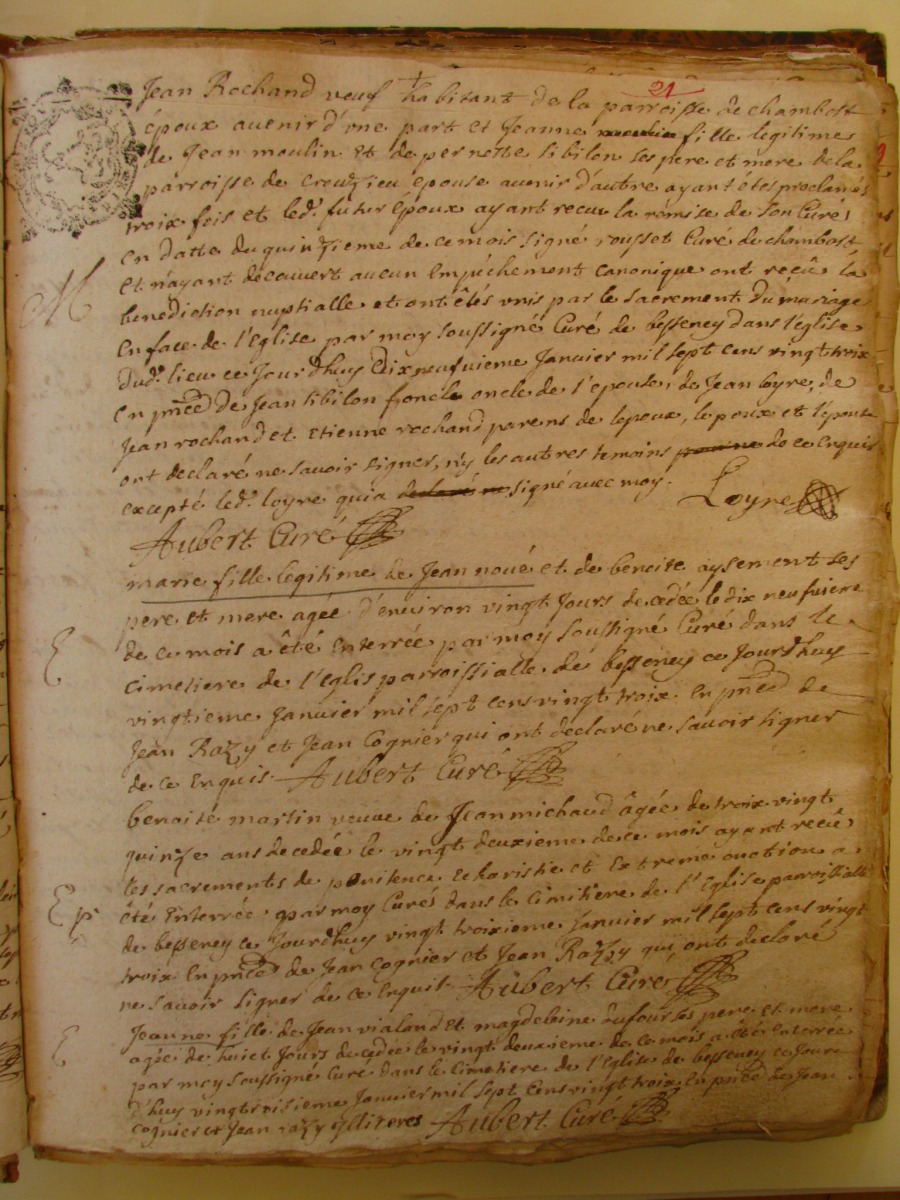 21
Jean Rochand veuf habitant de la parroisse de chambost
époux avenir d'one part et Jeanne fille legitimes
de Jean moulin et de pernette sibilon ses pere et mere de la
parroisse de creuzieu epouse avenir d'autre ayant étés proclamés
trois fois et led. futur epoux ayant recue la remise de son Curé
en datte du quinzieme de ce mois signé rousset Curé de chambost
et n'ayant découvert aucun empéchement canonique ont reçeü la
M
benediction nuptialle et ont étés vnis par le sacrement du mariage
en face de l'Eglise par moy soussigné Curé de besseney dans l'eglise
dud. lieu ce Jourdhuy dixneufuieme Janvier mil sept cens vingt trois
en pnced de Jean sibilon oncle de l'epouse, de Jean loyre, de
Jean rochand et etienne rochand parens de lepoux, lepoux et l'epouse
ont declaré ne savoir signer, n'y les autres temoins de ce Enquis
excepté led. loyre qui a declaré ne signé avec moy. Loyre
Aubert Curé
marie fille legitime de Jean noué et de benoite aysement ses
pere et mere agée d'environ vingt Jours decedée le dix neufuieme
E
de ce mois a été Enterrée par moy soussigné Curé dans le
cimetiere de l'eglis parroissialle de besseney ce Jourdhuy
vingtieme Janvier mil sept cens vingt trois en pnced de
Jean Razy et Jean Cognier qui ont declaré ne savoir signer
de ce Enquis Aubert Curé
benoite martin veuve de Jean michaud âgée de troix vingt
quinze ans decedée le vingt deuxieme de ce mois ayant réceü
les sacrements de penitence Echaristie et Extreme onction a
E p
été Enterrée par moy Curé dans le Cimitiere de l'Eglise parroissialle
de besseney ce Jourdhuy vingt troixieme Janvier mil sept cens vingt
troix En pnced de Jean Cognier et Jean Razzy qui ont declaré
ne savoir signer de ce Enquis Aubert Curé
E
Jeanne fille de Jean vialand et magdeleine dufour ses pere et mere
agée de huict Jours decedée le vingt deuxieme de ce mois a été Enterrée
par moy soussigné Curé dans le Cimetiere de l'Eglise de besseney ce Jour
d'huy vingtroisieme Janvier mil sept cens vingt troix En pnced de Jean
Cognier et Jean razy Illiteres Aubert Curé